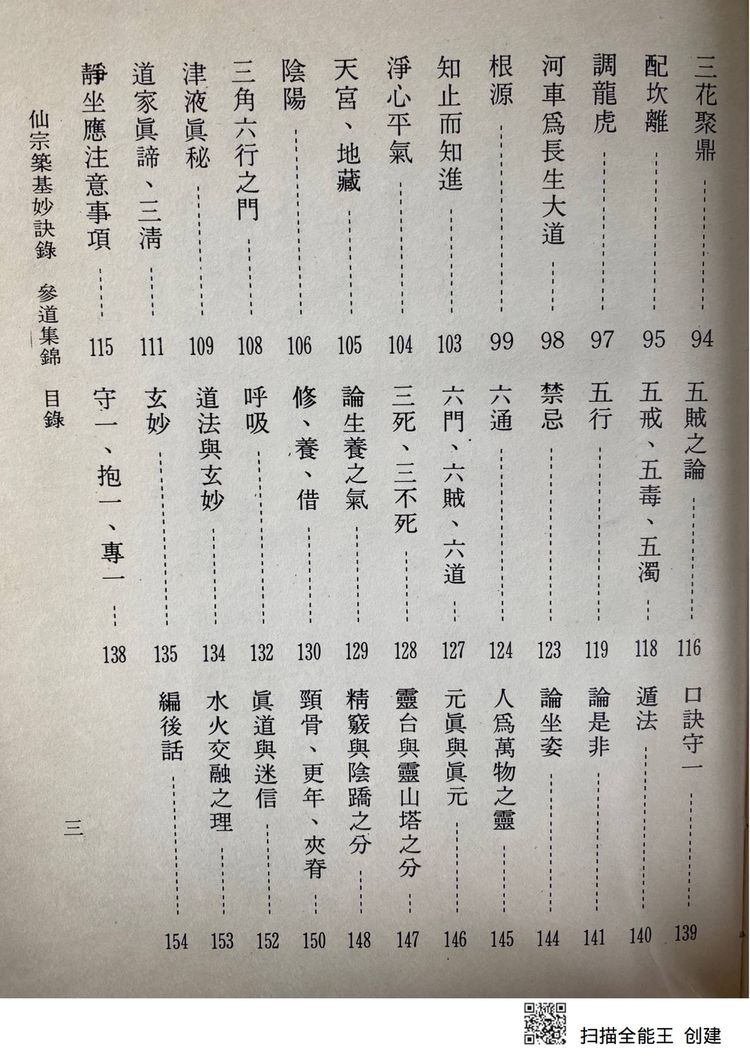 三花聚鼎 94
配坎離 95
調龍虎 97
河車爲長生大道 98
根源 99
知止而知進 103
淨心平氣 104
天宮、地藏 105
陰陽 106
三角六行之門 108
津液眞秘 109
道家眞諦、三淸 111
靜坐應注意事項 115
五賊之論 116
五戒、五毒、五濁 118
五行 119
禁忌 123
六通 124
六門、六賊、六道 127
三死、三不死 128
論生養之氣 129
修、養、借 130
呼吸 132
道法與玄妙 134
玄妙 135
守一、抱一、專一 138
口訣守一 139
遁法 140
論是非 141
論坐姿 144
人爲萬物之靈 145
元眞與眞元 146
靈台與靈山塔之分 147
精竅與陰蹻之分 148
頸骨、更年、夾脊 150
眞道與迷信 152
水火交融之理 153
編後話 154
仙宗築基妙訣錄 參道集錦 目錄
三
扫描全能王 创建